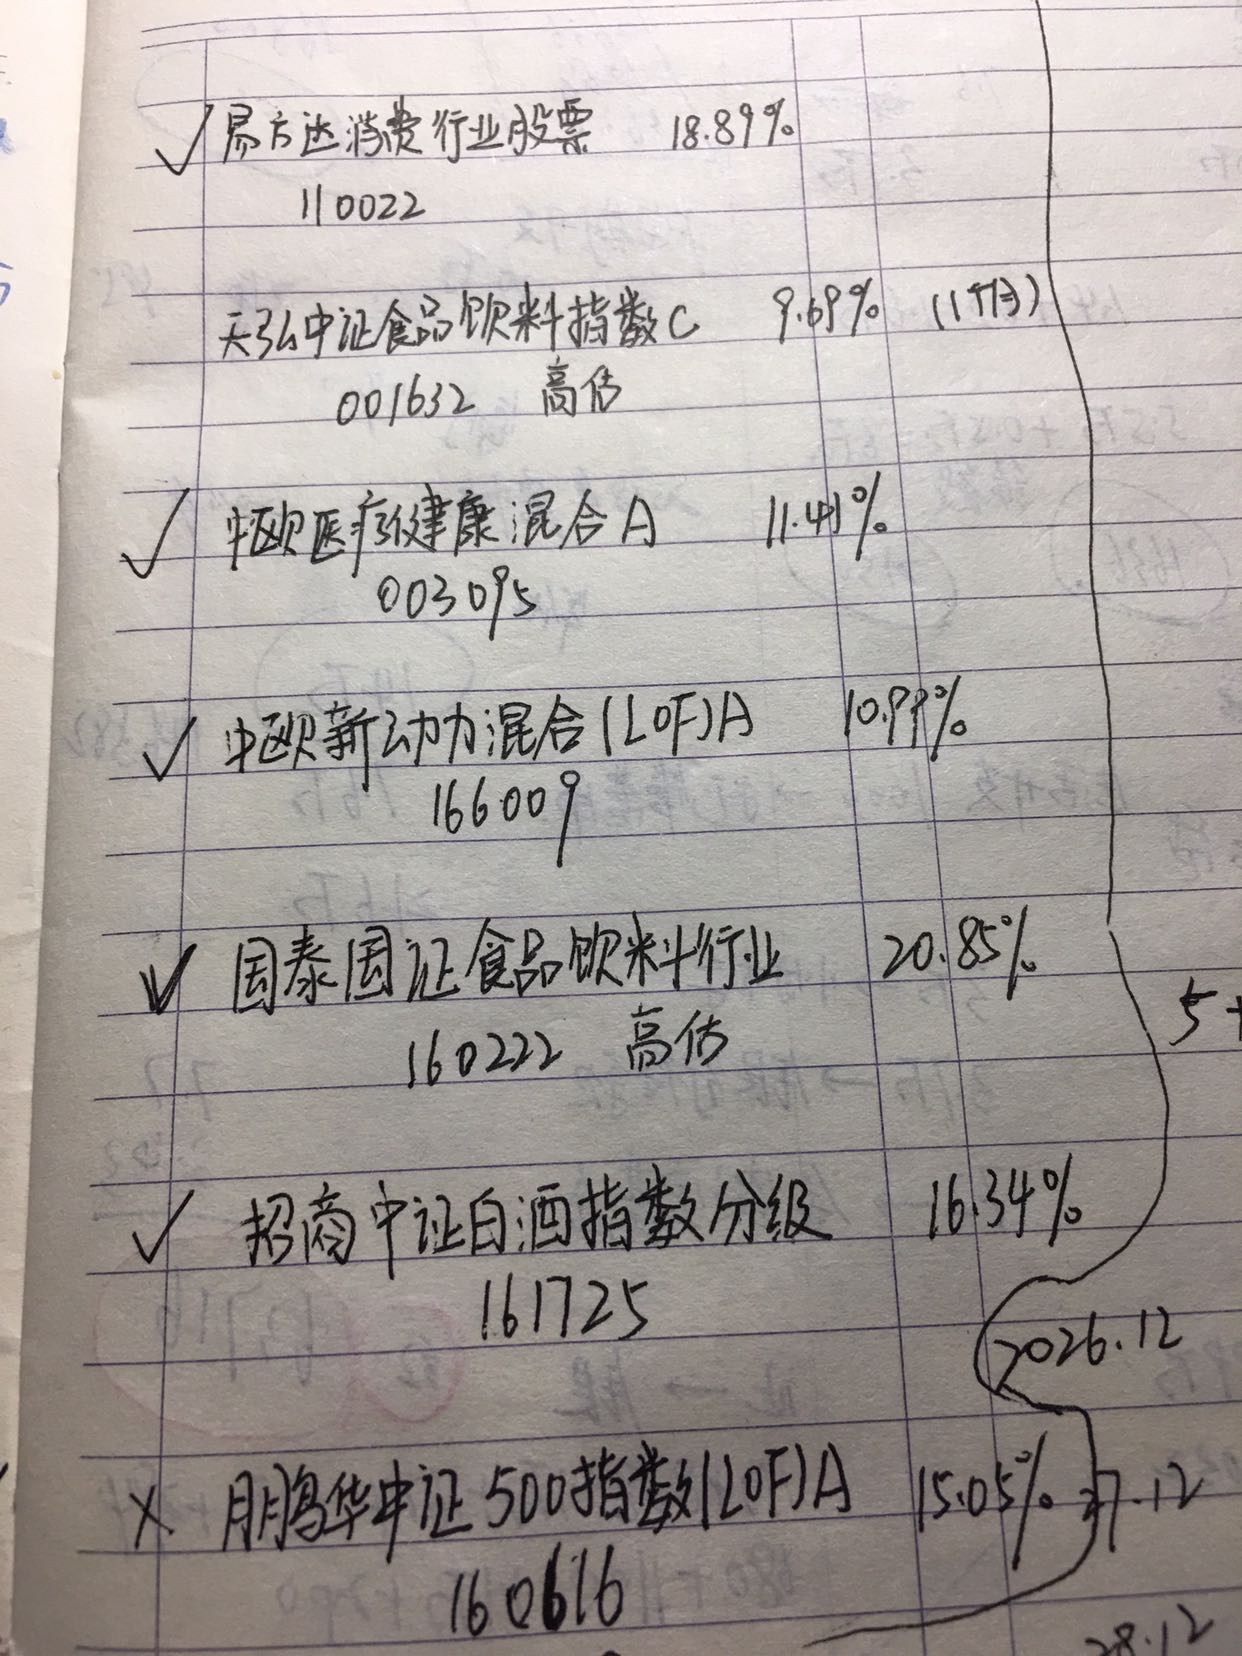 易方达消费行业股票 18.89%
110022
天弘中证食品饮料指数C 9.69% (1个月)
001632 高估
中欧医疗健康混合A 11.41%
003095
中欧新动力混合(LOF)A 10.99%
166009
国泰国证食品饮料行业 20.85%
160222 高估
5+
招商中证白酒指数分级 16.34%
161725
2026.12
鹏华中证500指数(LOF)A 15.05% 27.12
160616
28.12